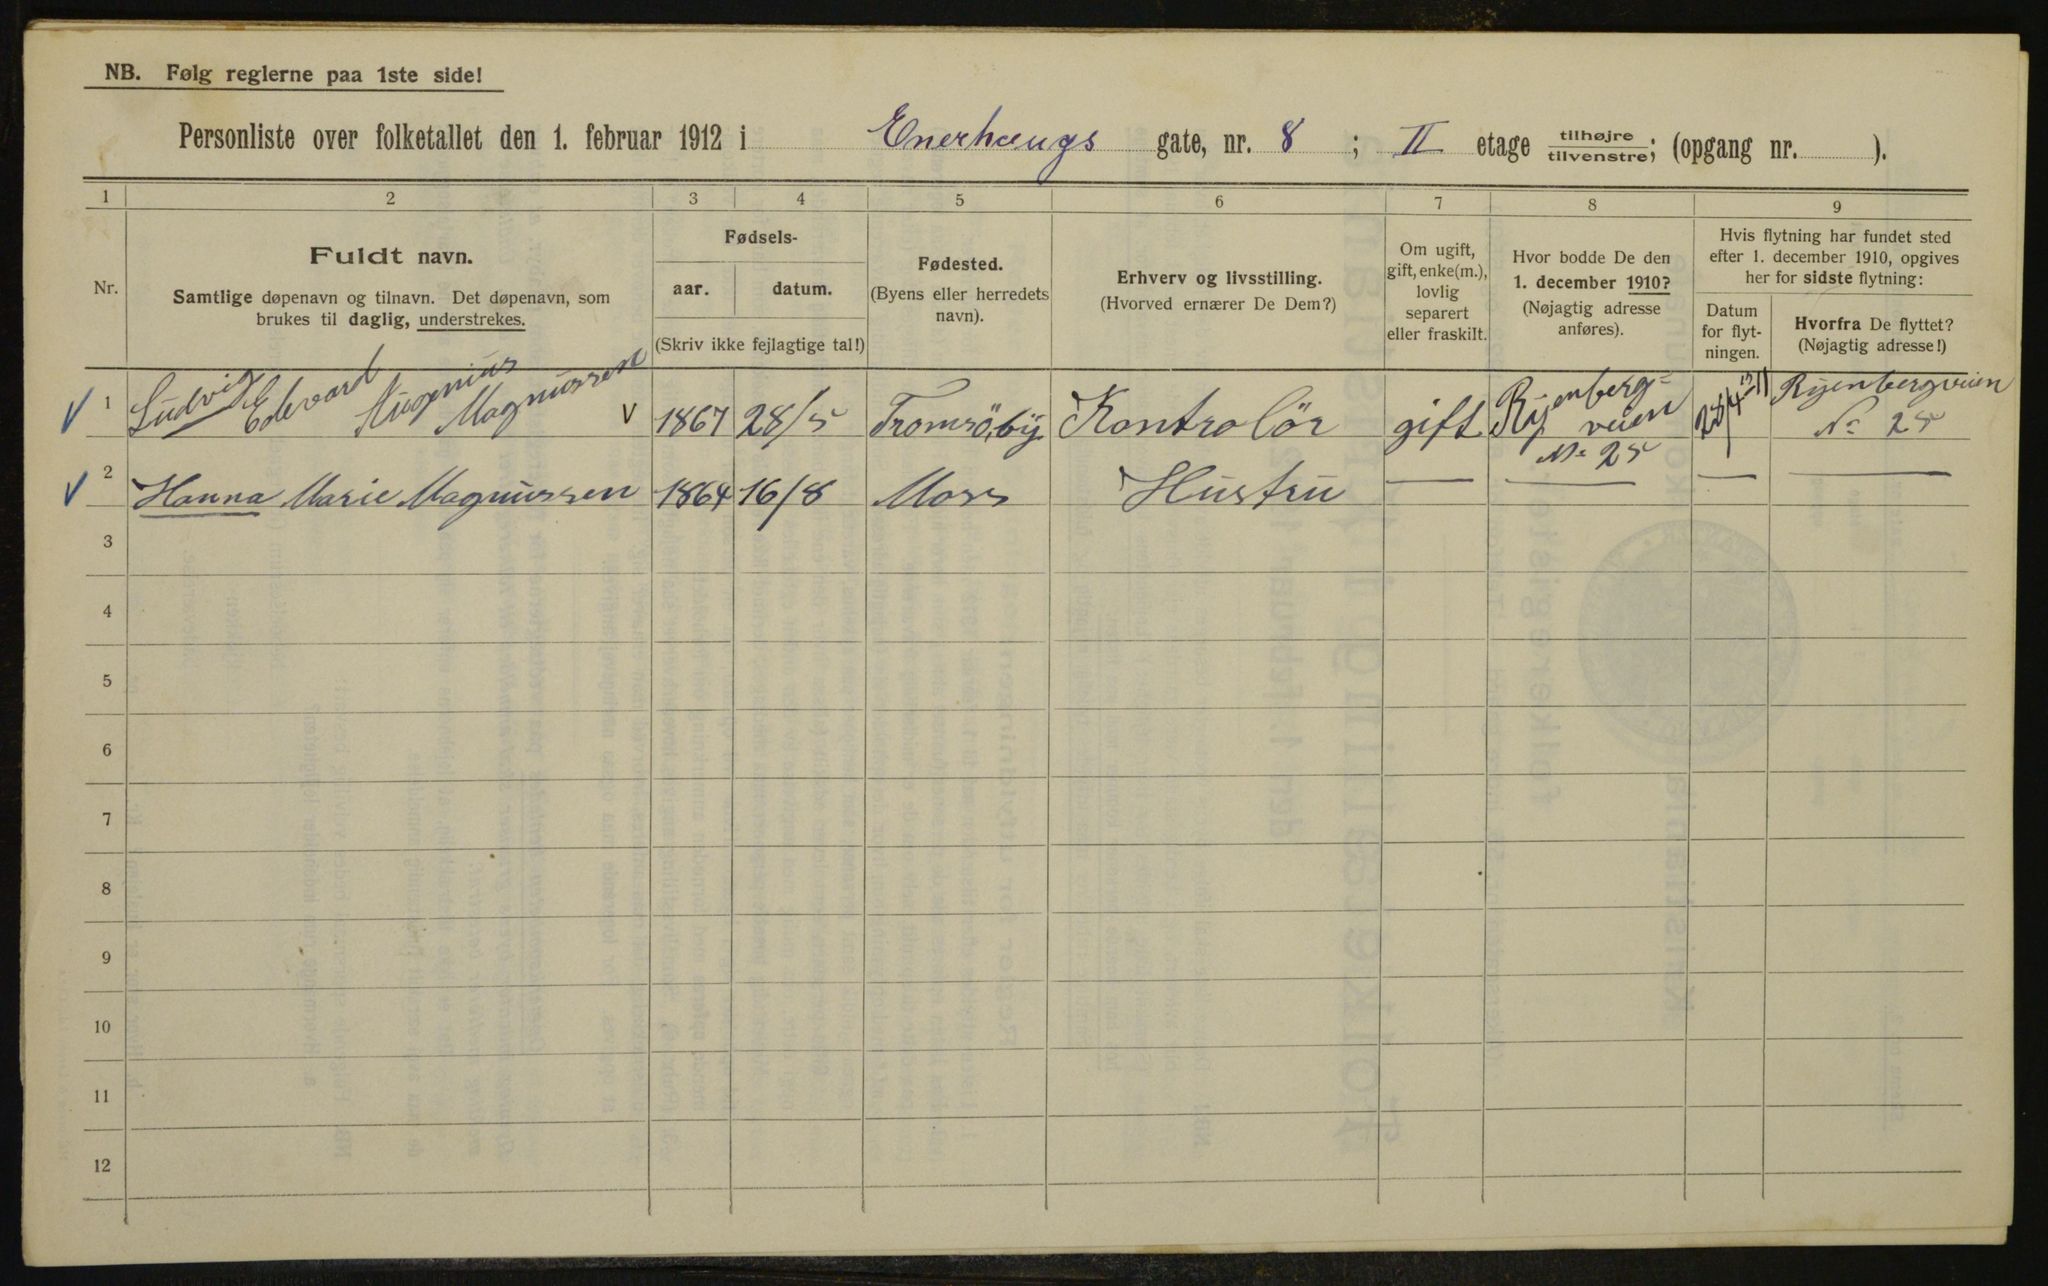 NB. Følg reglerne paa 1ste side!
Personliste over folketallet den 1. februar 1912 i Enerhaugs gate, nr. 8 ; II etage tilhøjre/tilvenstre; (opgang nr. ).
1 2 3 4 5 6 7 8 9
Nr.
Fuldt navn.
Samtlige døpenavn og tilnavn. Det døpenavn, som
brukes til daglig, understrekes.
Fødsels-
aar. datum.
(Skriv ikke fejlagtige tal!)
Fødested.
(Byens eller herredets
navn).
Erhverv og livsstilling.
(Hvorved ernærer De Dem?)
Om ugift,
gift, enke(m.),
lovlig
separert
eller fraskilt.
Hvor bodde De den
1. december 1910?
(Nøjagtig adresse
anføres).
Hvis flytning har fundet sted
efter 1. december 1910, opgives
her for sidste flytning:
Datum
for flyt-
ningen.
Hvorfra De flyttet?
(Nøjagtig adresse!)
1 Ludvig Edevard Augenius Magnussen V 1867 28/5 Tromsö, by Kontrolör gift Ryenberg=
veien
No 25
Ryenbergveien
No 25
2 Hanna Marie Magnussen 1864 16/8 Moss Hustru — — — —
3
4
5
6
7
8
9
10
11
12